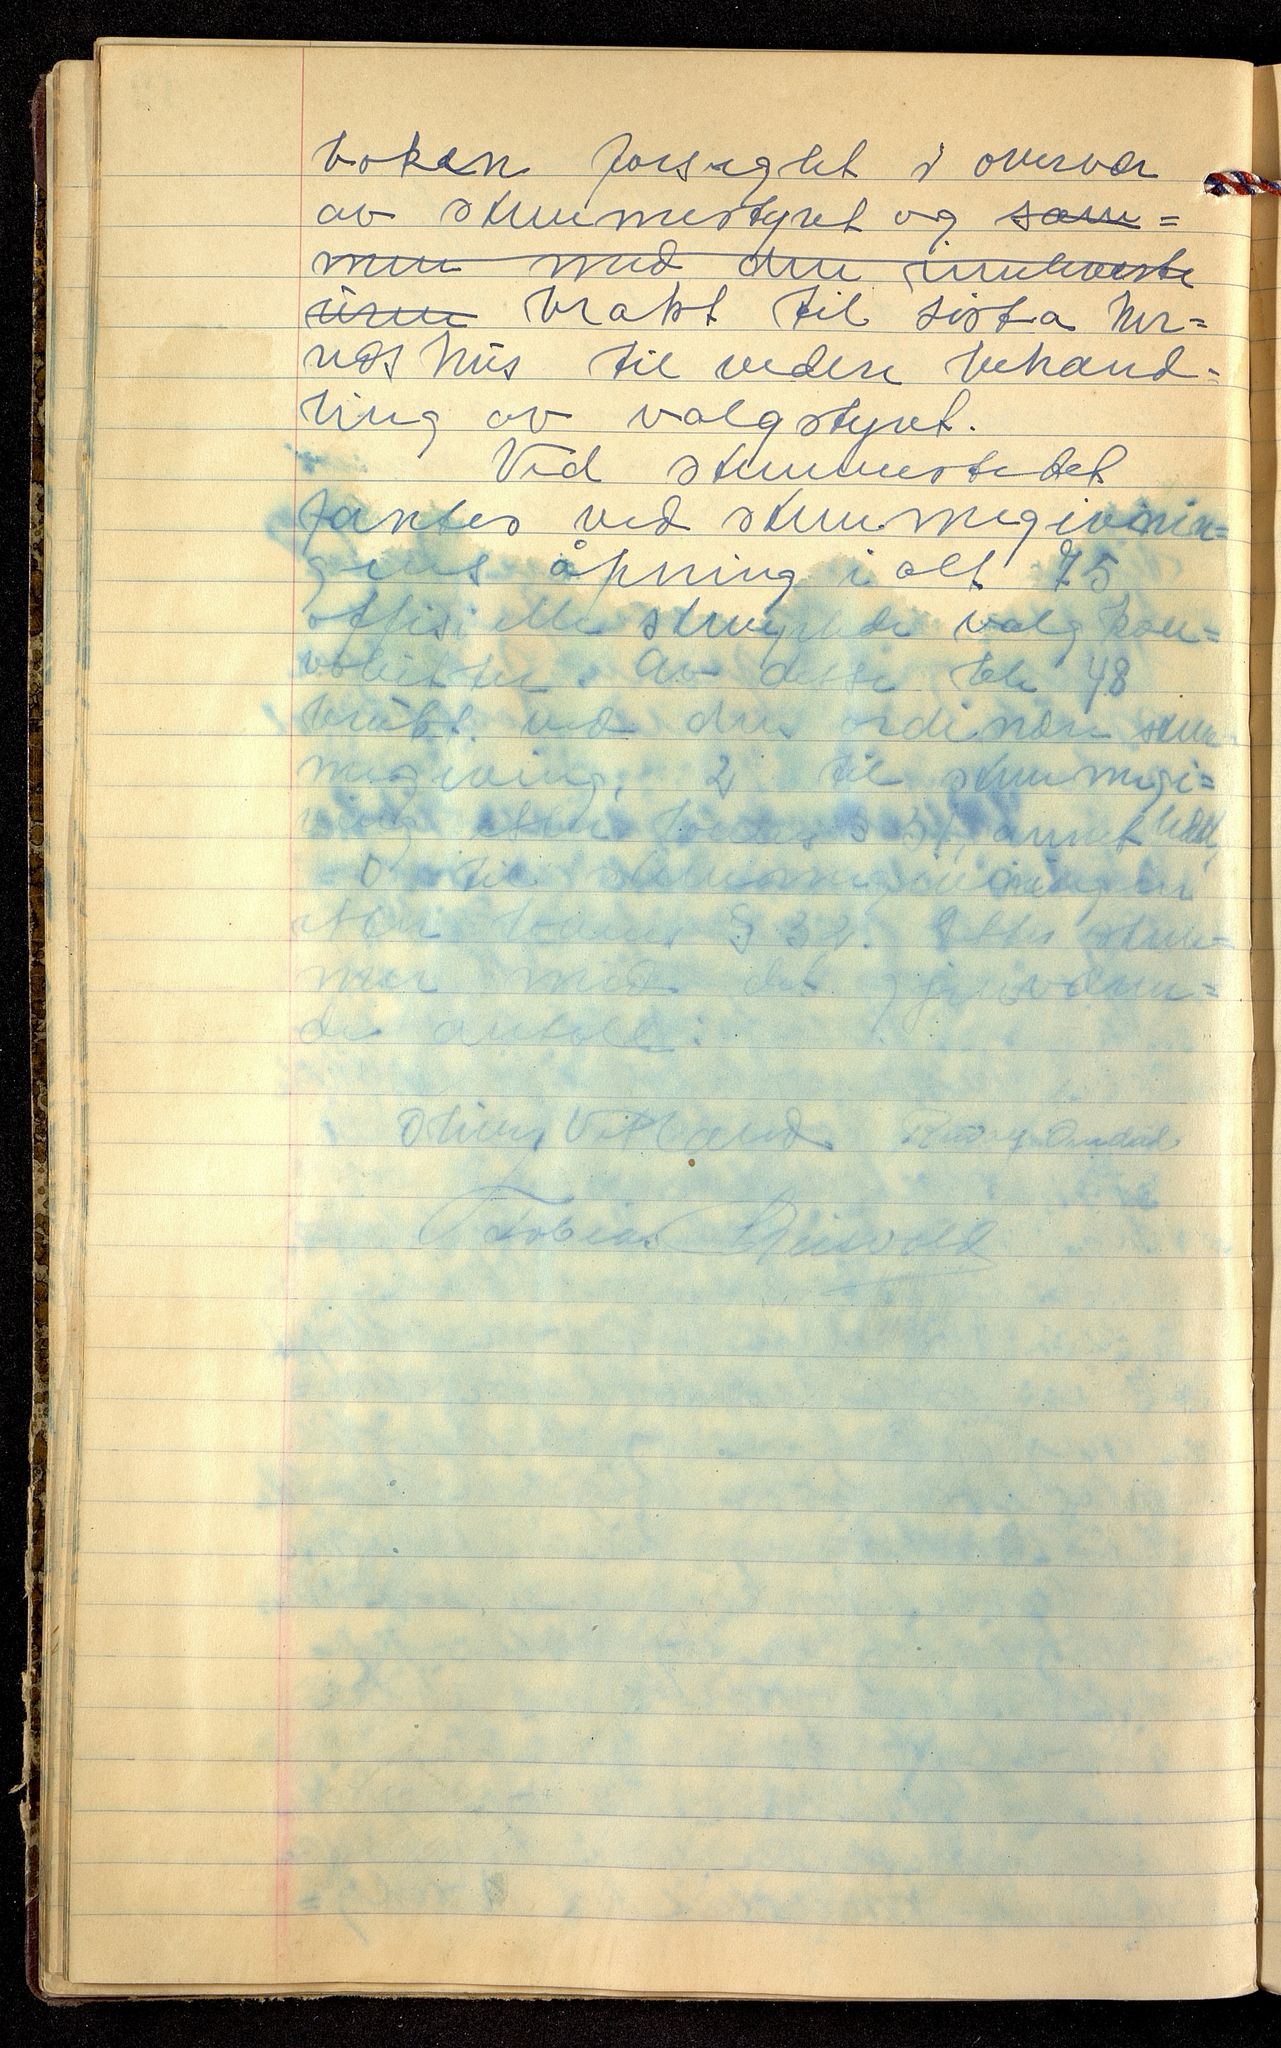 boken forseglet i overvær
av stemmestyret og sam=
men med den innleverte
urne brakt til Lista her=
redshus til videre behand=
ling av valgstyret.
Ved stemmestedet
fantes ved stemmegivnin=
gens åpning i alt 75
offisielle stemplede valgkon=
volutter. Av disse ble 48
brukt ved den ordinære stem=
megiving, 2 til stemmegi=
ving etter lovens § 31, annet ledd,
0 til stemmegivningen
etter lovens § 32. Dette stem=
mer med det gjenværen=
de antall:
Vetland
Tobias